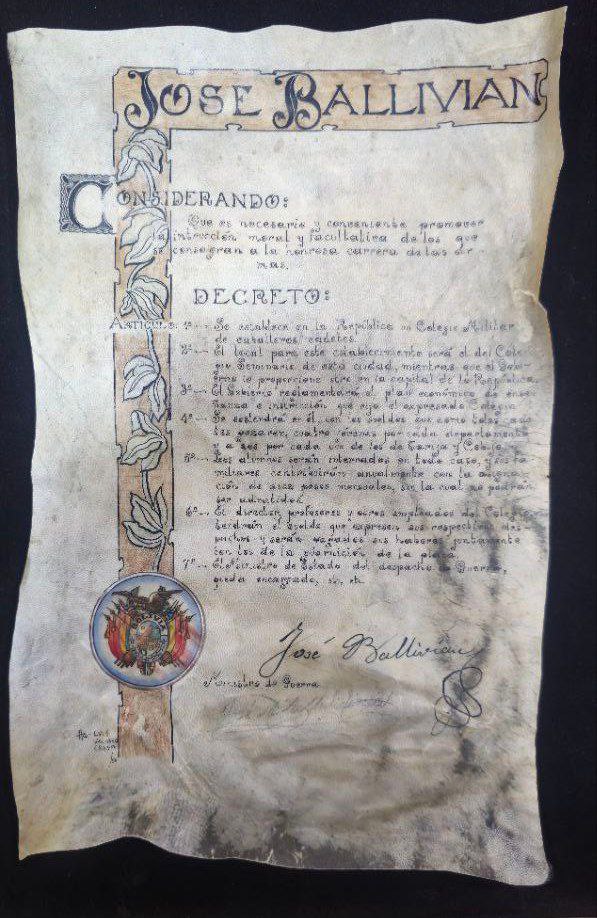 JOSE BALLIVIAN
CONSIDERANDO:
Que es necesario y conveniente promover
la instrucción moral y facultativa de los que
se consagran a la honrosa carrera de las ar-
mas.
DECRETO:
ARTICULO: 1º.- Se establece en la República un Colegio Militar
de caballeros cadetes.
2º.- El local para este establecimiento será el del Cole-
gio Seminario de esta ciudad, mientras que el Gob-
ierno le proporcione otro en la capital de la República.
3º.- El Gobierno reglamentará el plan económico de ense-
ñanza e instrucción que rija el expresado Colegio.
4º.- Se sostendrá en él, con los sueldos
cuatro jóvenes por cada departamento
y dos por cada uno de los de Tarija y Cobija.
5º.- Los alumnos serán internados en todo caso, y sus fa-
milias contribuirán anualmente con la asigna-
ción de diez pesos mensuales, sin la cual no podrán
ser admitidos.
6º.- El director, profesores y otros empleados del Colegio
tendrán el sueldo que expresen sus respectivos des-
pachos y serán pagados sus haberes juntamente
con los de la guarnición de la plaza.
7º.- El Ministro de Estado del despacho de Guerra,
queda encargado,
BOLIVIA
José Ballivián
Ministro de Guerra